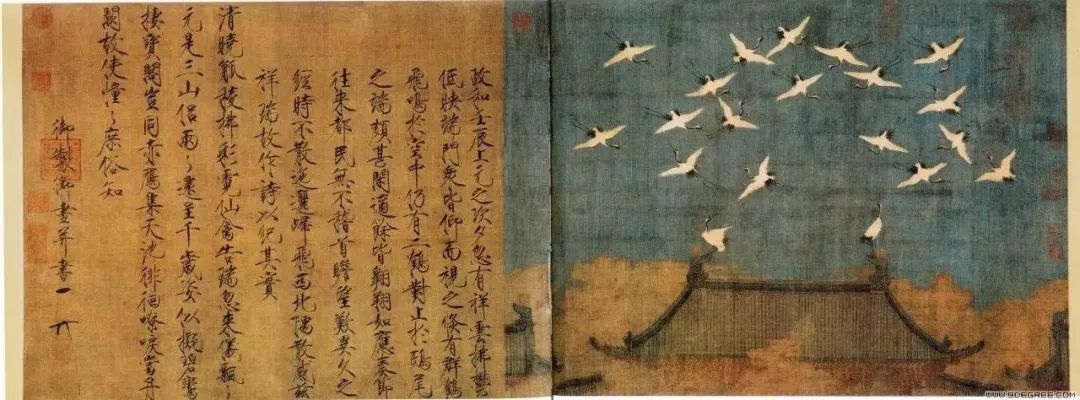 政和壬辰上元之次夕忽有祥雲拂鬱
低映端門衆皆仰而視之倏有群鶴
飛鳴於空中仍有二鶴對止於鴟尾
之端頗甚閑適餘皆翱翔如應奏節
往來都民無不稽首瞻望歎異久之
經時不散迤邐歸飛西北隅散感茲
祥瑞故作詩以紀其實
清曉觚稜拂彩霓仙禽告瑞忽來儀飄〻
元是三山侶兩〻還呈千歲姿似擬碧鸞
棲寶閣豈同赤鴈集天池徘徊嘹唳當丹
闕故使憧〻庶俗知
御製御畫并書
WWW.9DEGREE.COM